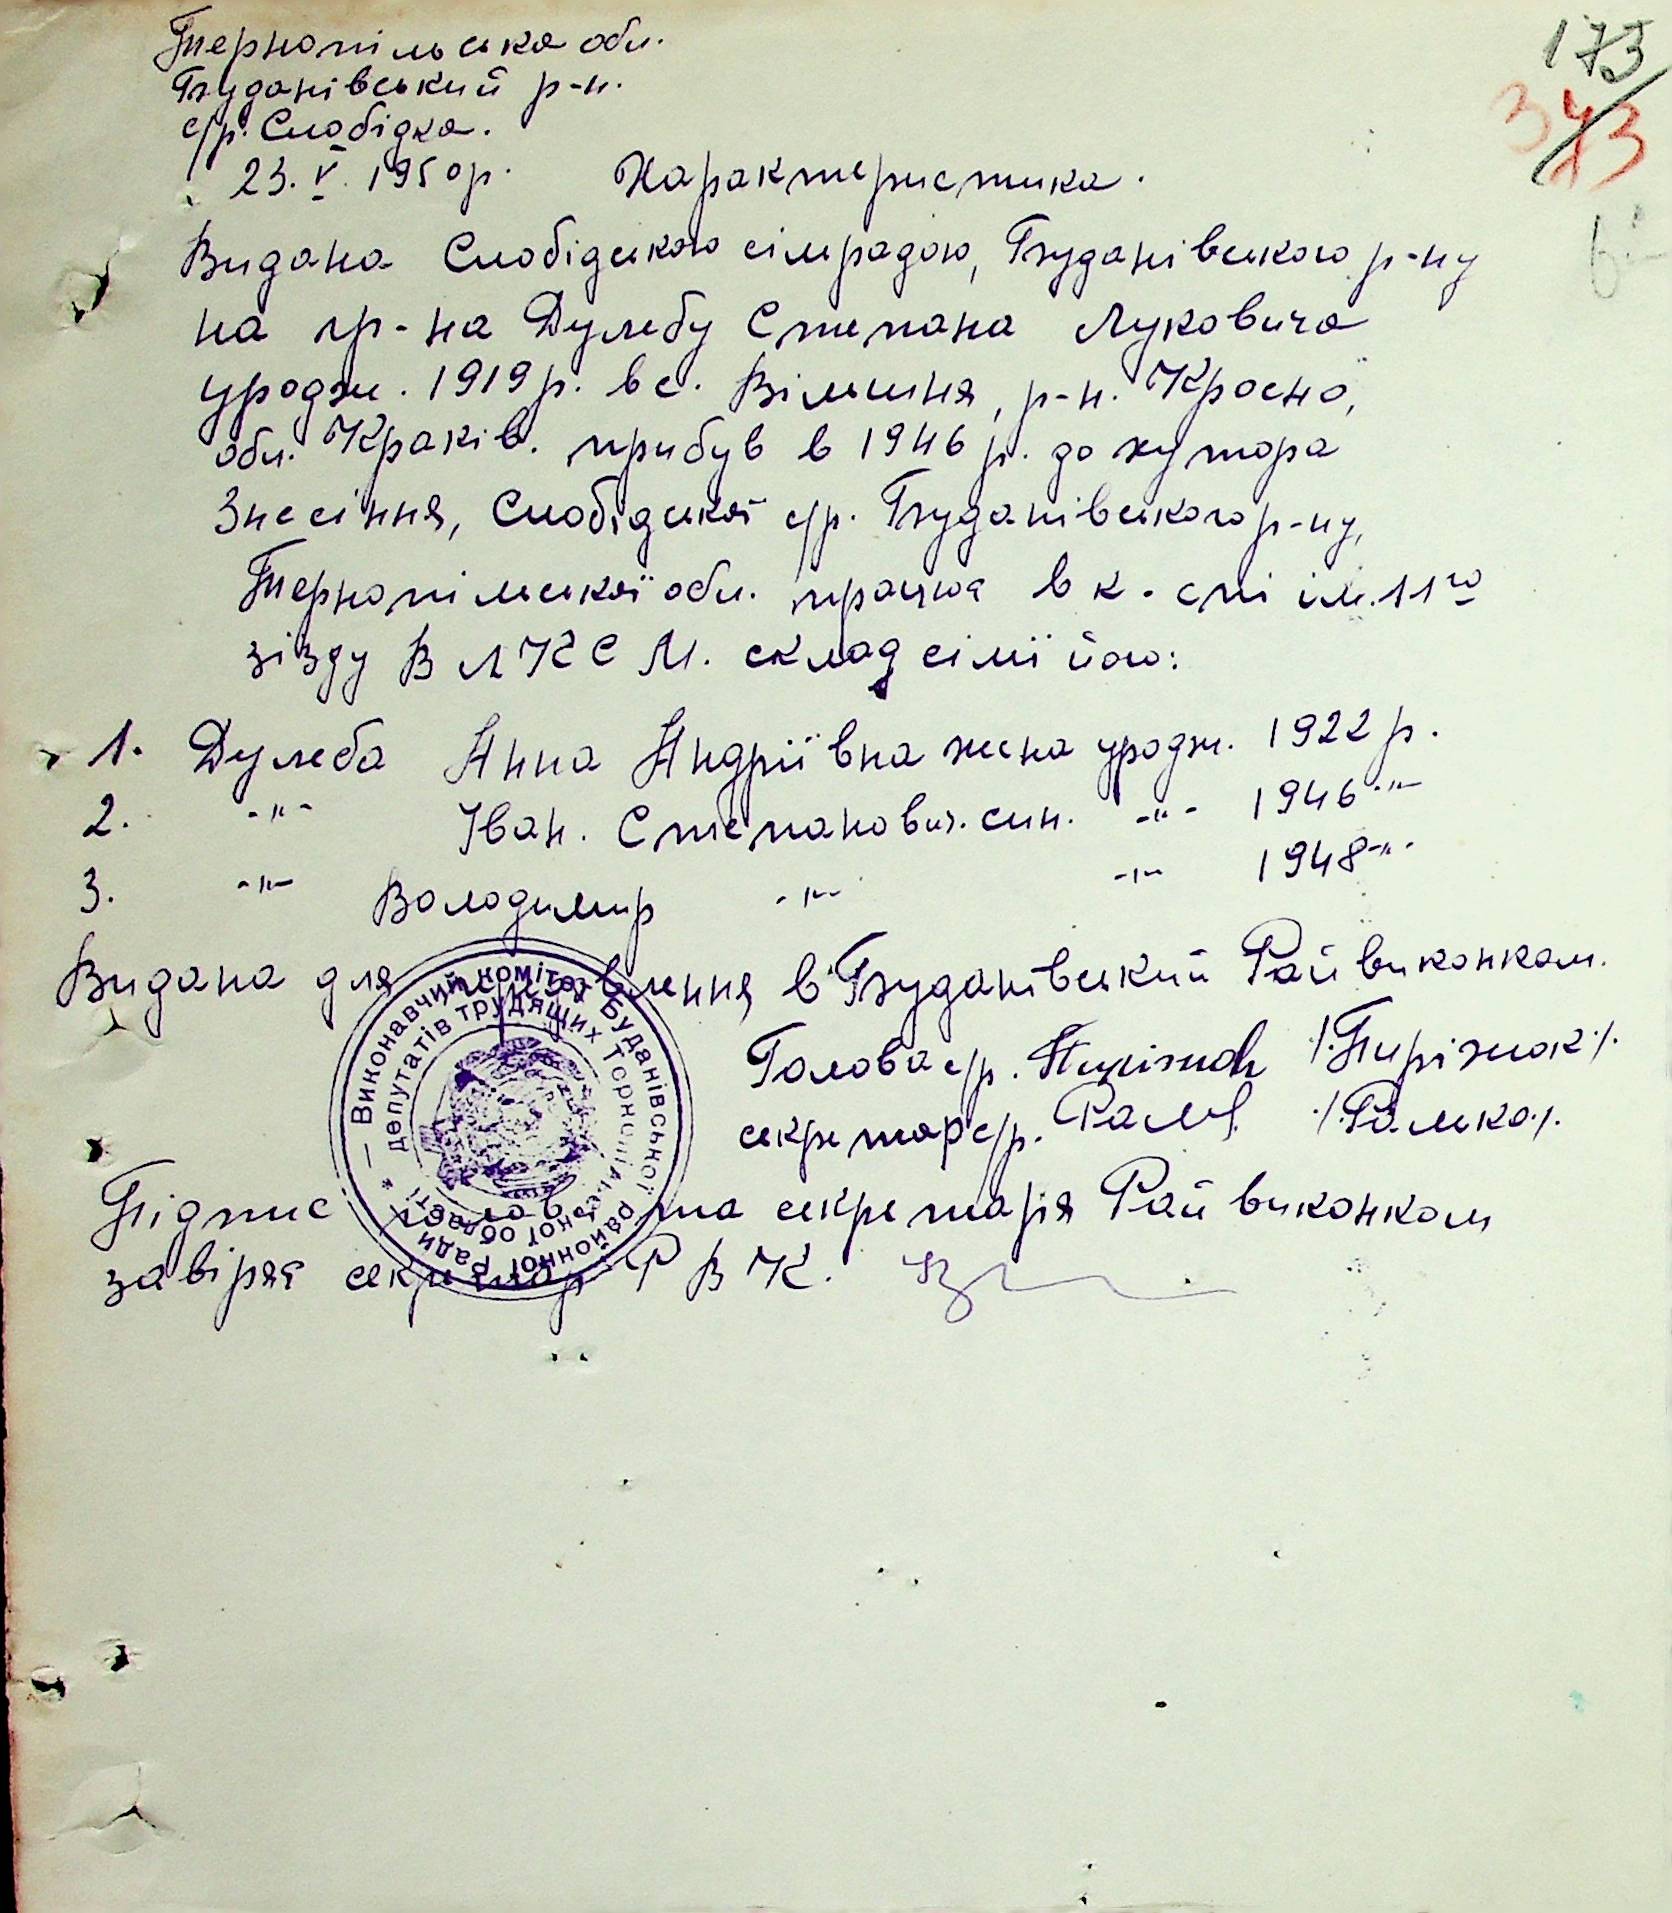 173
373
Тернопільська обл.
Буданівський р-н.
с/р. Слобідка.
23. V. 1950р. Характеристика.
Видана Слобідською сілрадою, Буданівського р-ну
на гр-на Дулебу Степана Луковича
уродж. 1919р. в с. Вільшня, р-н. Кросно,
обл. Краків. прибув в 1946 р. до хутора
Знесіння, Слобідської с/р. Буданівського р-ну,
Тернопільської обл. працює в к-спі ім. 11го
зізду ВЛКСМ. склад сімї його:
1. Дулеба Анна Андріївна жена уродж. 1922 р.
2. -"- Іван. Степанович. син. -"- 1946 -"-
3. -"- Володимир -"- -"- 1948 -"-
Видана для предявлення в Буданівський Райвиконком.
Голова с/р. Пиріжок /Пиріжок/.
секретар с/р. Ральк /Ралько/.
Підпис голови та секретаря Райвиконком
завіряє секретар РВК.
Виконавчий комітет Буданівської районної Ради
депутатів трудящих Тернопільської області